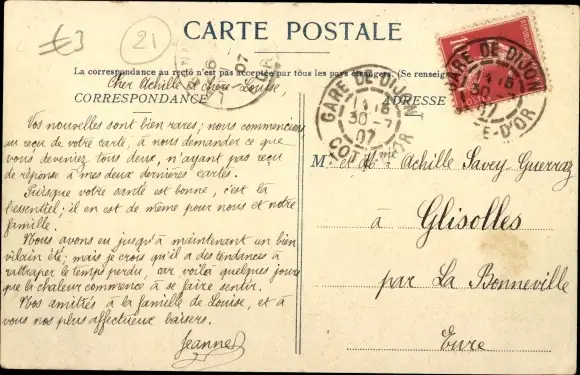 €3
21
CARTE POSTALE
La correspondance au recto n'est pas acceptée par tous les pays étrangers. (Se renseign
Cher Achille et chère Louise,
CORRESPONDANCE
ADRESSE
Vos nouvelles sont bien rares; nous commencions
au reçu de votre carte, à nous demander ce que
vous deveniez tous deux, n'ayant pas reçu
de réponse à mes deux dernières cartes.
Puisque votre santé est bonne, c'est là
l'essentiel; il en est de même pour nous et notre
famille.
Nous avons eu jusqu'à maintenant un bien
vilain été; mais je crois qu'il a des tendances à
rattraper le temps perdu, car voilà quelques jours
que la chaleur commence à se faire sentir.
Nos amitiés à la famille de Louise, et à
vous nos plus affectueux baisers.
Jeanne
M. et Mme Achille Savey-Guerraz
à Glisolles
par La Bonneville
Eure
GARE DE DIJON
30-7
07
COTE-D'OR
GARE DE DIJON
30
E-D'OR
10
07